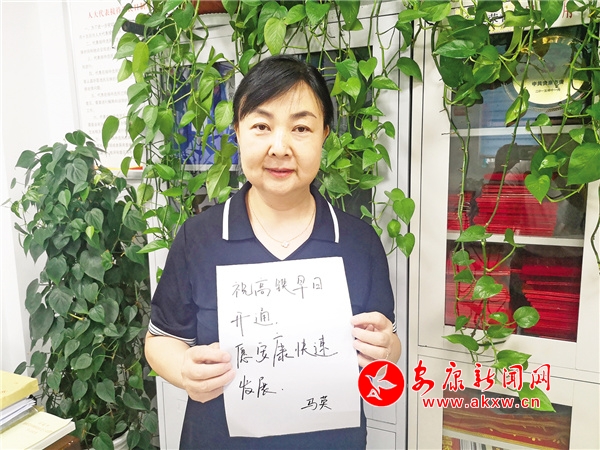 祝高铁早日
开通.
愿安康快速
发展.
马英
安康新闻网
www.akxw.cn